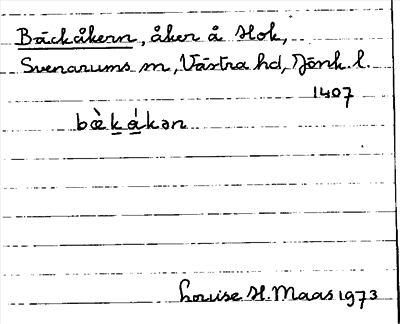 Bäckåkern, åker å Hok,
Svenarums sn, Västra hd, Jönk. l.
1407
bæ̀kákən
Louise H. Maas 1973